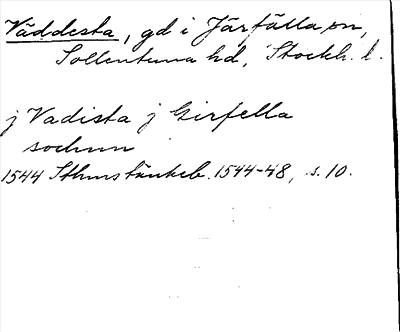 Väddesta, gd i Järfälla sn,
Sollentuna hd, Stockh. l.
j Vadista j Girfella
sochnn
1544 Sthms tänkeb. 1544-48, s. 10.